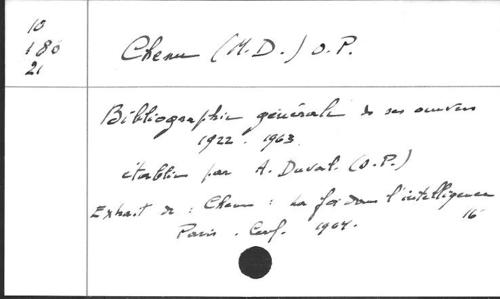 10
180
21
Chenu (M.D.) O.P.
Bibliographie générale de ses oeuvres
1922 - 1963.
établie par A. Duval. (O.P.)
Extrait de : Chenu : La foi dans l'intelligence
Paris. Cerf. 1964.
16